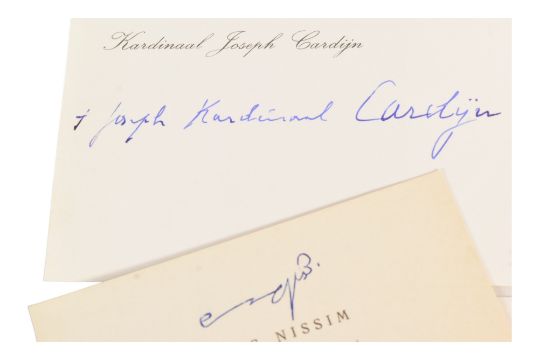 Kardinaal Joseph Cardijn
+ Joseph Kardinaal Cardijn
NISSIM